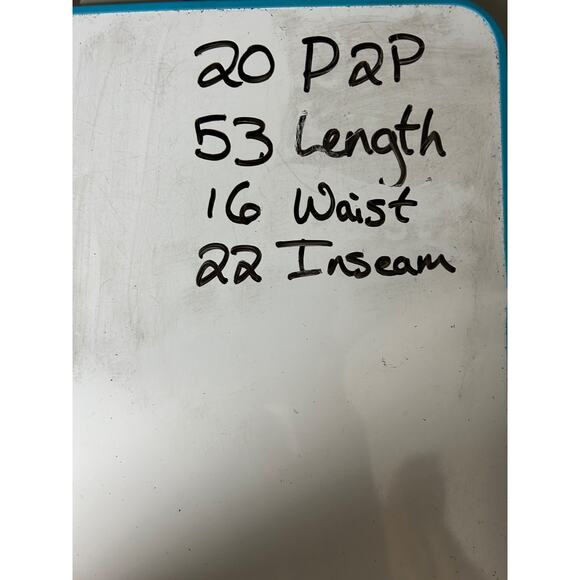 20 P2P
53 Length
16 Waist
22 Inseam